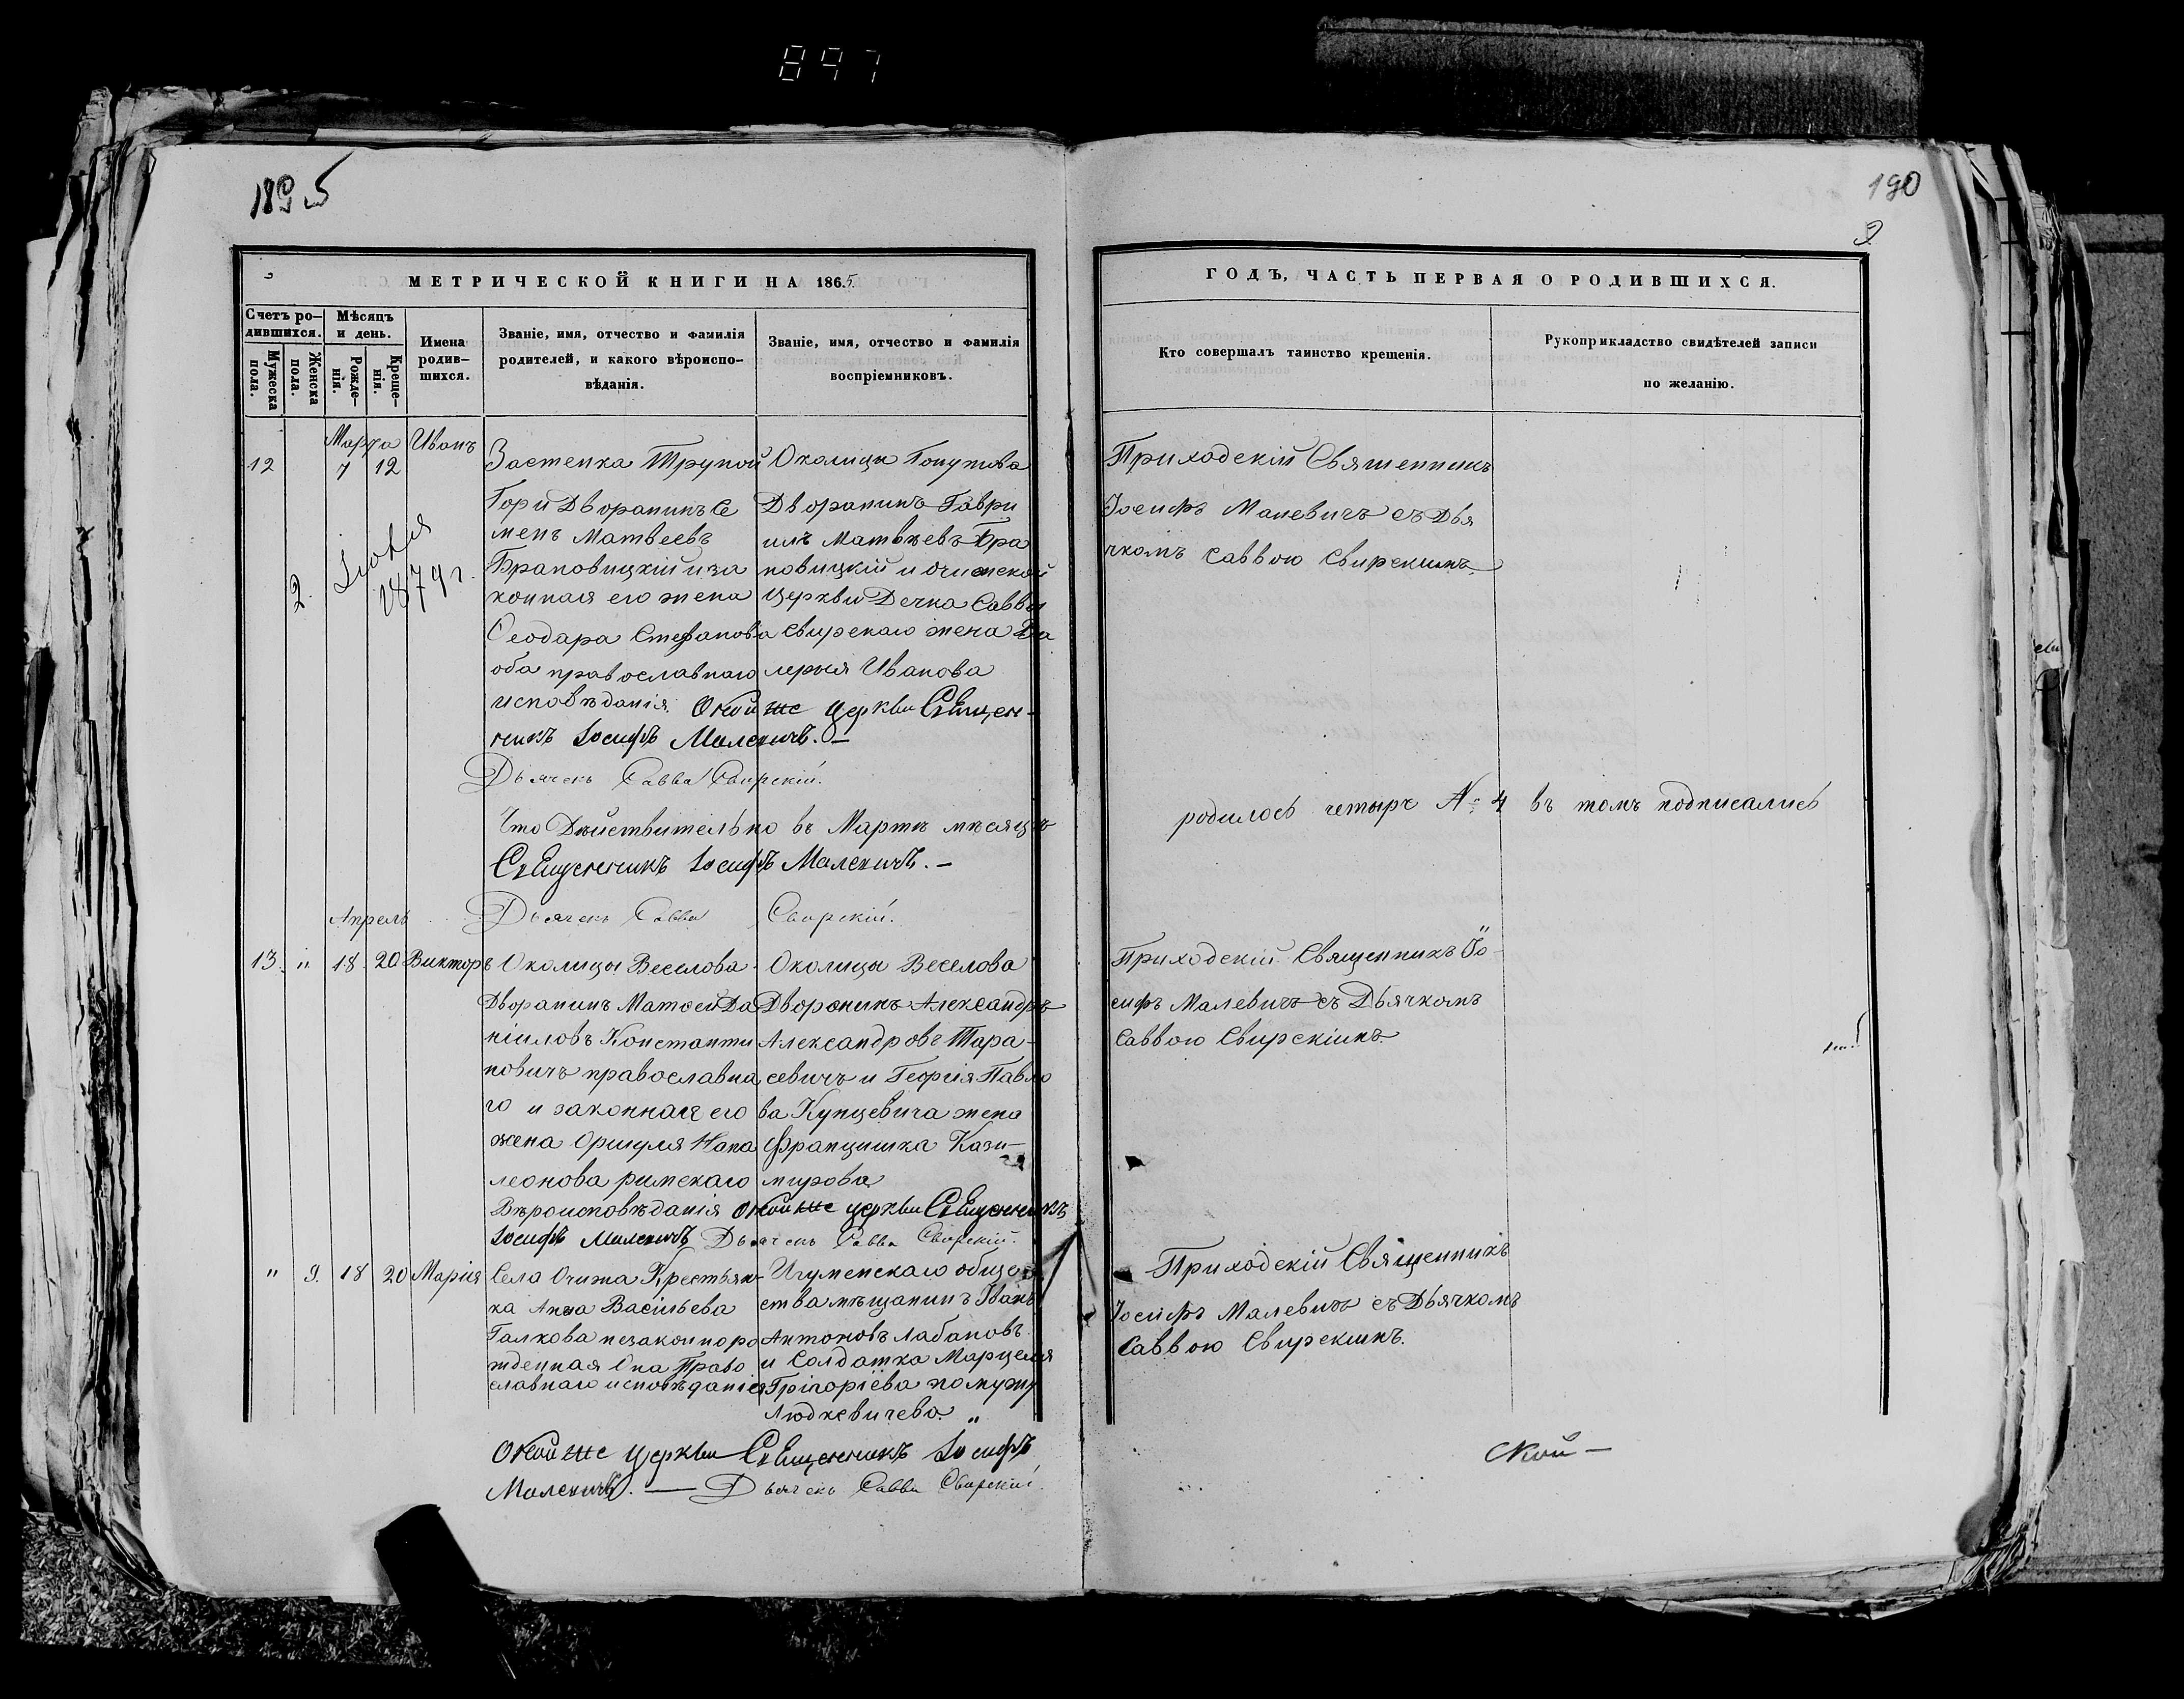 897
1895
190
9.
МЕТРИЧЕСКОЙ КНИГИ НА 1865.
ГОДЪ, ЧАСТЬ ПЕРВАЯ О РОДИВШИХСЯ.
Счетъ ро-
дившихся.
Мужеска
пола.
Женска
пола.
Мѣсяцъ
и день.
Рожде-
нія.
Креще-
нія.
Имена
родив-
шихся.
Званіе, имя, отчество и фамилія
родителей, и какого вѣроиспо-
вѣданія.
Званіе, имя, отчество и фамилія
воспріемниковъ.
Кто совершалъ таинство крещенія.
Рукоприкладство свидѣтелей записи
по желанію.
Марта
12
7 12
Иванъ
2.
1879 г.
Застенка Трупой
Гори Дворанинъ Се
менъ Матвеевъ
Брановицкій и за
конная его жена
Ѳеодара Стефанова
оба православнаго
исповѣданія.
Околицы
Дворанинъ Гаври
илъ Матвѣевъ Бра
новицкій и
церкви Дечка Саввы
Свирскаго жена Ва
лерыя Иванова
Приходскій Священникъ
Іосифъ Малевичъ съ Дья
чкомъ Саввою Свирскимъ
Оной же церкви Священ-
никъ Іосифъ Малевичъ. —
Дьячекъ Савва Свирскій.
Что Дѣйствительно въ Мартѣ мѣсяцѣ
родилось четыре № 4 въ томъ подписались
Священникъ Іосифъ Малевичъ. —
Дьячекъ Савва Свирскій.
Апрель
13. " 18. 20 Викторъ
Околицы Веселова
Дворанинъ Матѳей Да
ніиловъ Константи
новичъ православна
го и законная его
жена Оршуля Напа
леонова римскаго
Вѣроисповѣданія
Околицы Веселова
Дворонинъ Александръ
Александровъ Тара-
севичъ и Георгія Павло
ва Купцевича жена
Францишка Кази-
мирова
Приходскій Священникъ Іо-
сифъ Малевичъ съ Дьячкомъ
Саввою Свирскімъ.
Оной же церкви Священникъ
Іосифъ Малевичъ Дьячекъ Савва Свирскій.
" 9. 18 20 Марія
Села Очижа Крестьян-
ка Анна Васильева
Галкова незаконноро
жденная Она Право
славнаго исповѣданія
Игуменскаго общес
ства мѣщанинъ Іванъ
Антоновъ Лабановъ
и Солдатка Марцеля
Грігоріева по мужу
Людкевичева. "
Приходскій Священникъ
Іосифъ Малевичъ съ Дьячкомъ
Саввою Свирскимъ.
Оной же церкви Священникъ Іосифъ
Малевичъ. — Дьячекъ Савва Свирскій.
ской —